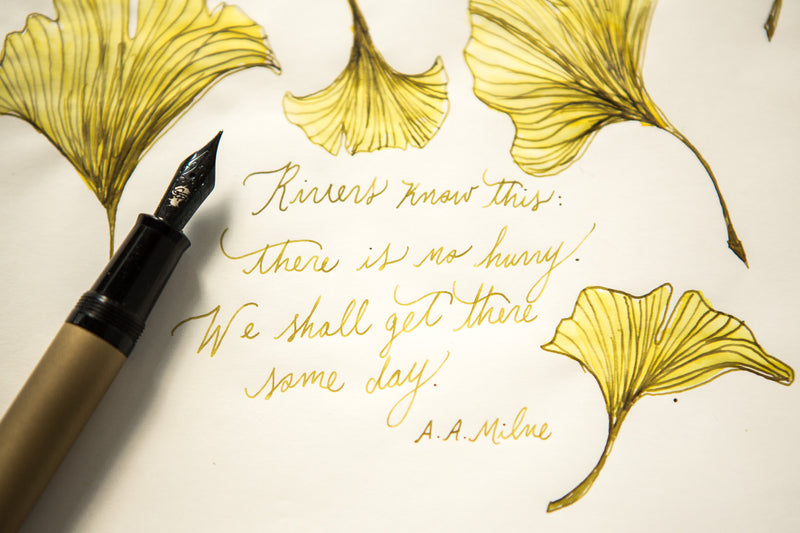 Rivers know this:
there is no hurry.
We shall get there
some day.
A.A. Milne